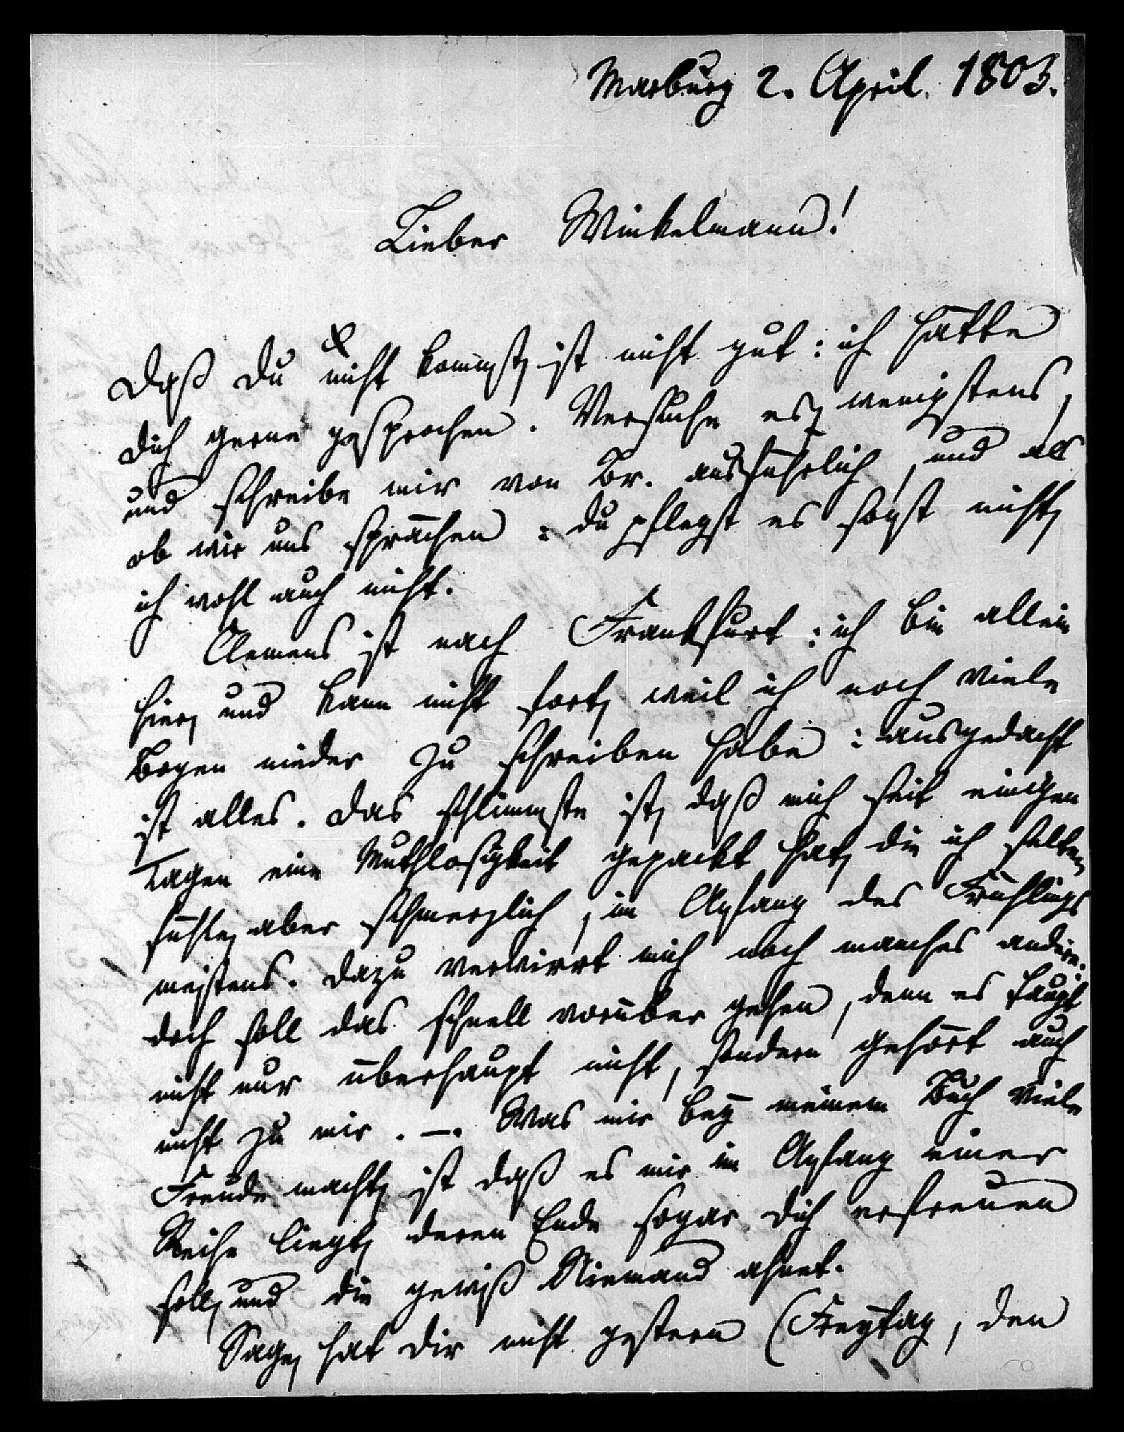 Marburg 2. April. 1803.
Lieber Winkelmann!
Daß du nicht kommst, ist nicht gut: ich hätte
dich gerne gesprochen. Versuche es, wenigstens,
und schreibe mir von Br. ausführlich, und als
ob wir uns sprächen: du pflegst es sonst nicht,
ich wohl auch nicht.
Clemens ist nach Frankfurt: ich bin allein
hier, und kann nicht fort, weil ich noch viele
Bogen nieder zu schreiben habe: ausgedacht
ist alles. Das schlimmste ist, daß mich seit einigen
Tagen eine Muthlosigkeit gepackt hat, die ich selten
fühle, aber schmerzlich, im Anfang des Frühlings
meistens. Dazu verwirrt mich noch manches andre:
doch soll das schnell vorüber gehen, denn es taugt
nicht nur überhaupt nicht, sondern gehört auch
nicht zu mir. —. Was mir bey meinem Buch viele
Freude macht, ist daß es mir im Anfang einer
Reihe liegt, deren Ende sogar dich erfreuen
soll, und die gewiß Niemand ahnet.
Sage, hat dir nicht gestern (Freytag, den